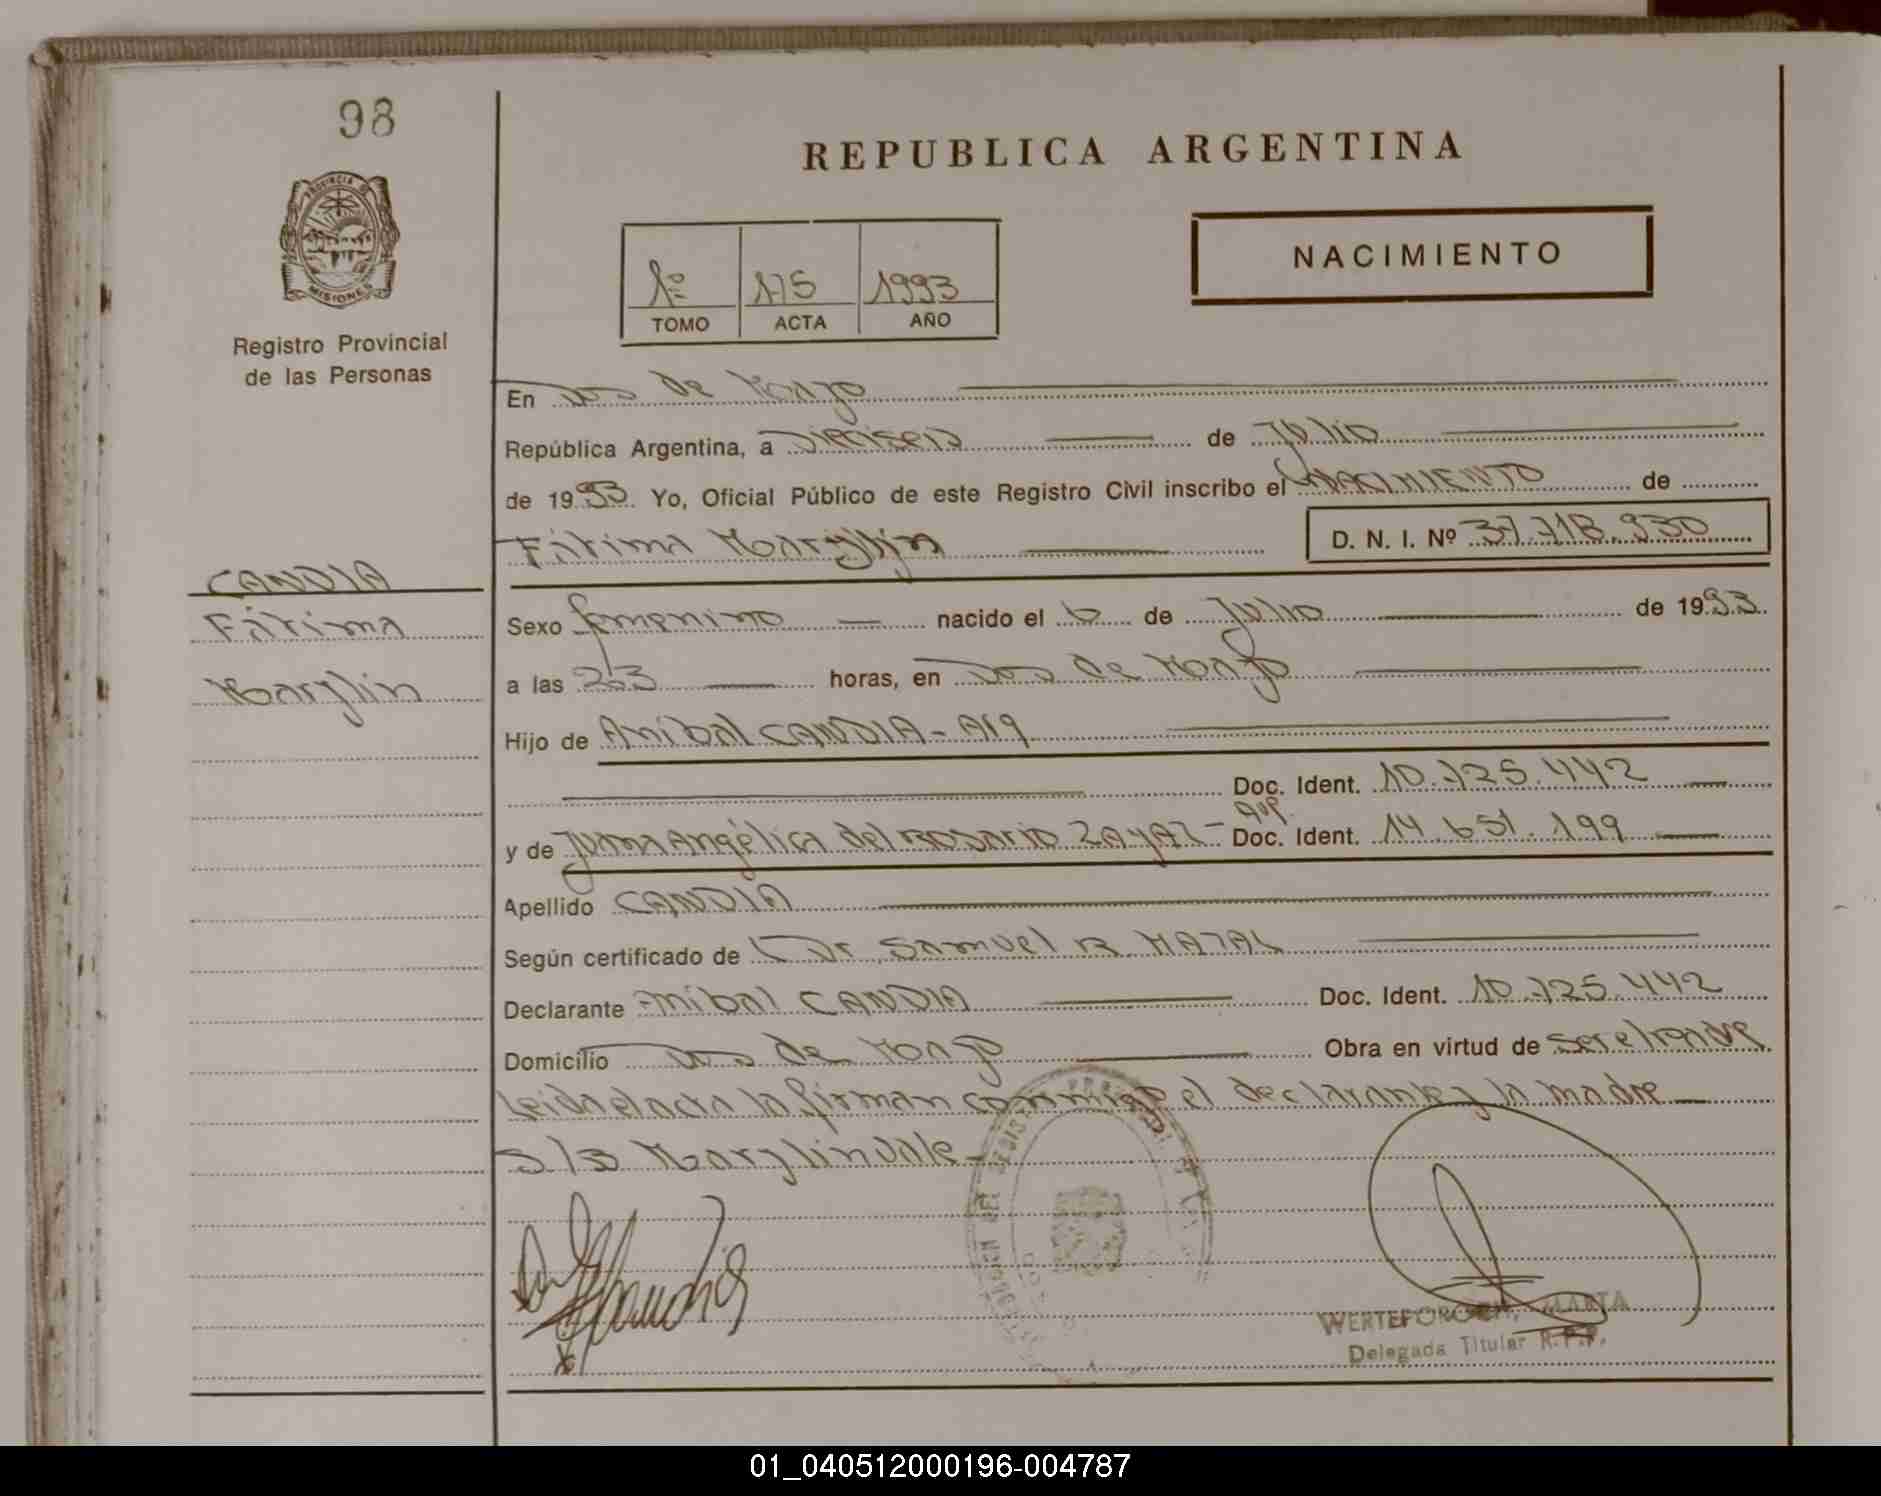 98
REPUBLICA ARGENTINA
PROVINCIA DE
MISIONES
1º 175 1993
TOMO ACTA AÑO
NACIMIENTO
Registro Provincial
de las Personas
En Dos de Mayo
República Argentina, a Dieciseis de Julio
de 1993. Yo, Oficial Público de este Registro Civil inscribo el NACIMIENTO de
Fátima Marylin D. N. I. Nº 37.718.930
CANDIA
Fátima
Marylin
Sexo femenino nacido el 6 de Julio de 1993
a las 23 horas, en Dos de Mayo
Hijo de Anibal CANDIA - Arg
Doc. Ident. 10.725.442
y de Juana Angélica del ROSARIO ZAyAZ - Arg. Doc. Ident. 14.651.199
Apellido CANDIA
Según certificado de Dr Samuel R.
Declarante Anibal CANDIA Doc. Ident. 10.725.442
Domicilio Dos de Mayo Obra en virtud de ser el padre
Leida el acta la firman conmigo el declarante y la madre
S/B Marylin vale -
WERTEFORGEN, MARTA
Delegada Titular R.P.P.
01_040512000196-004787